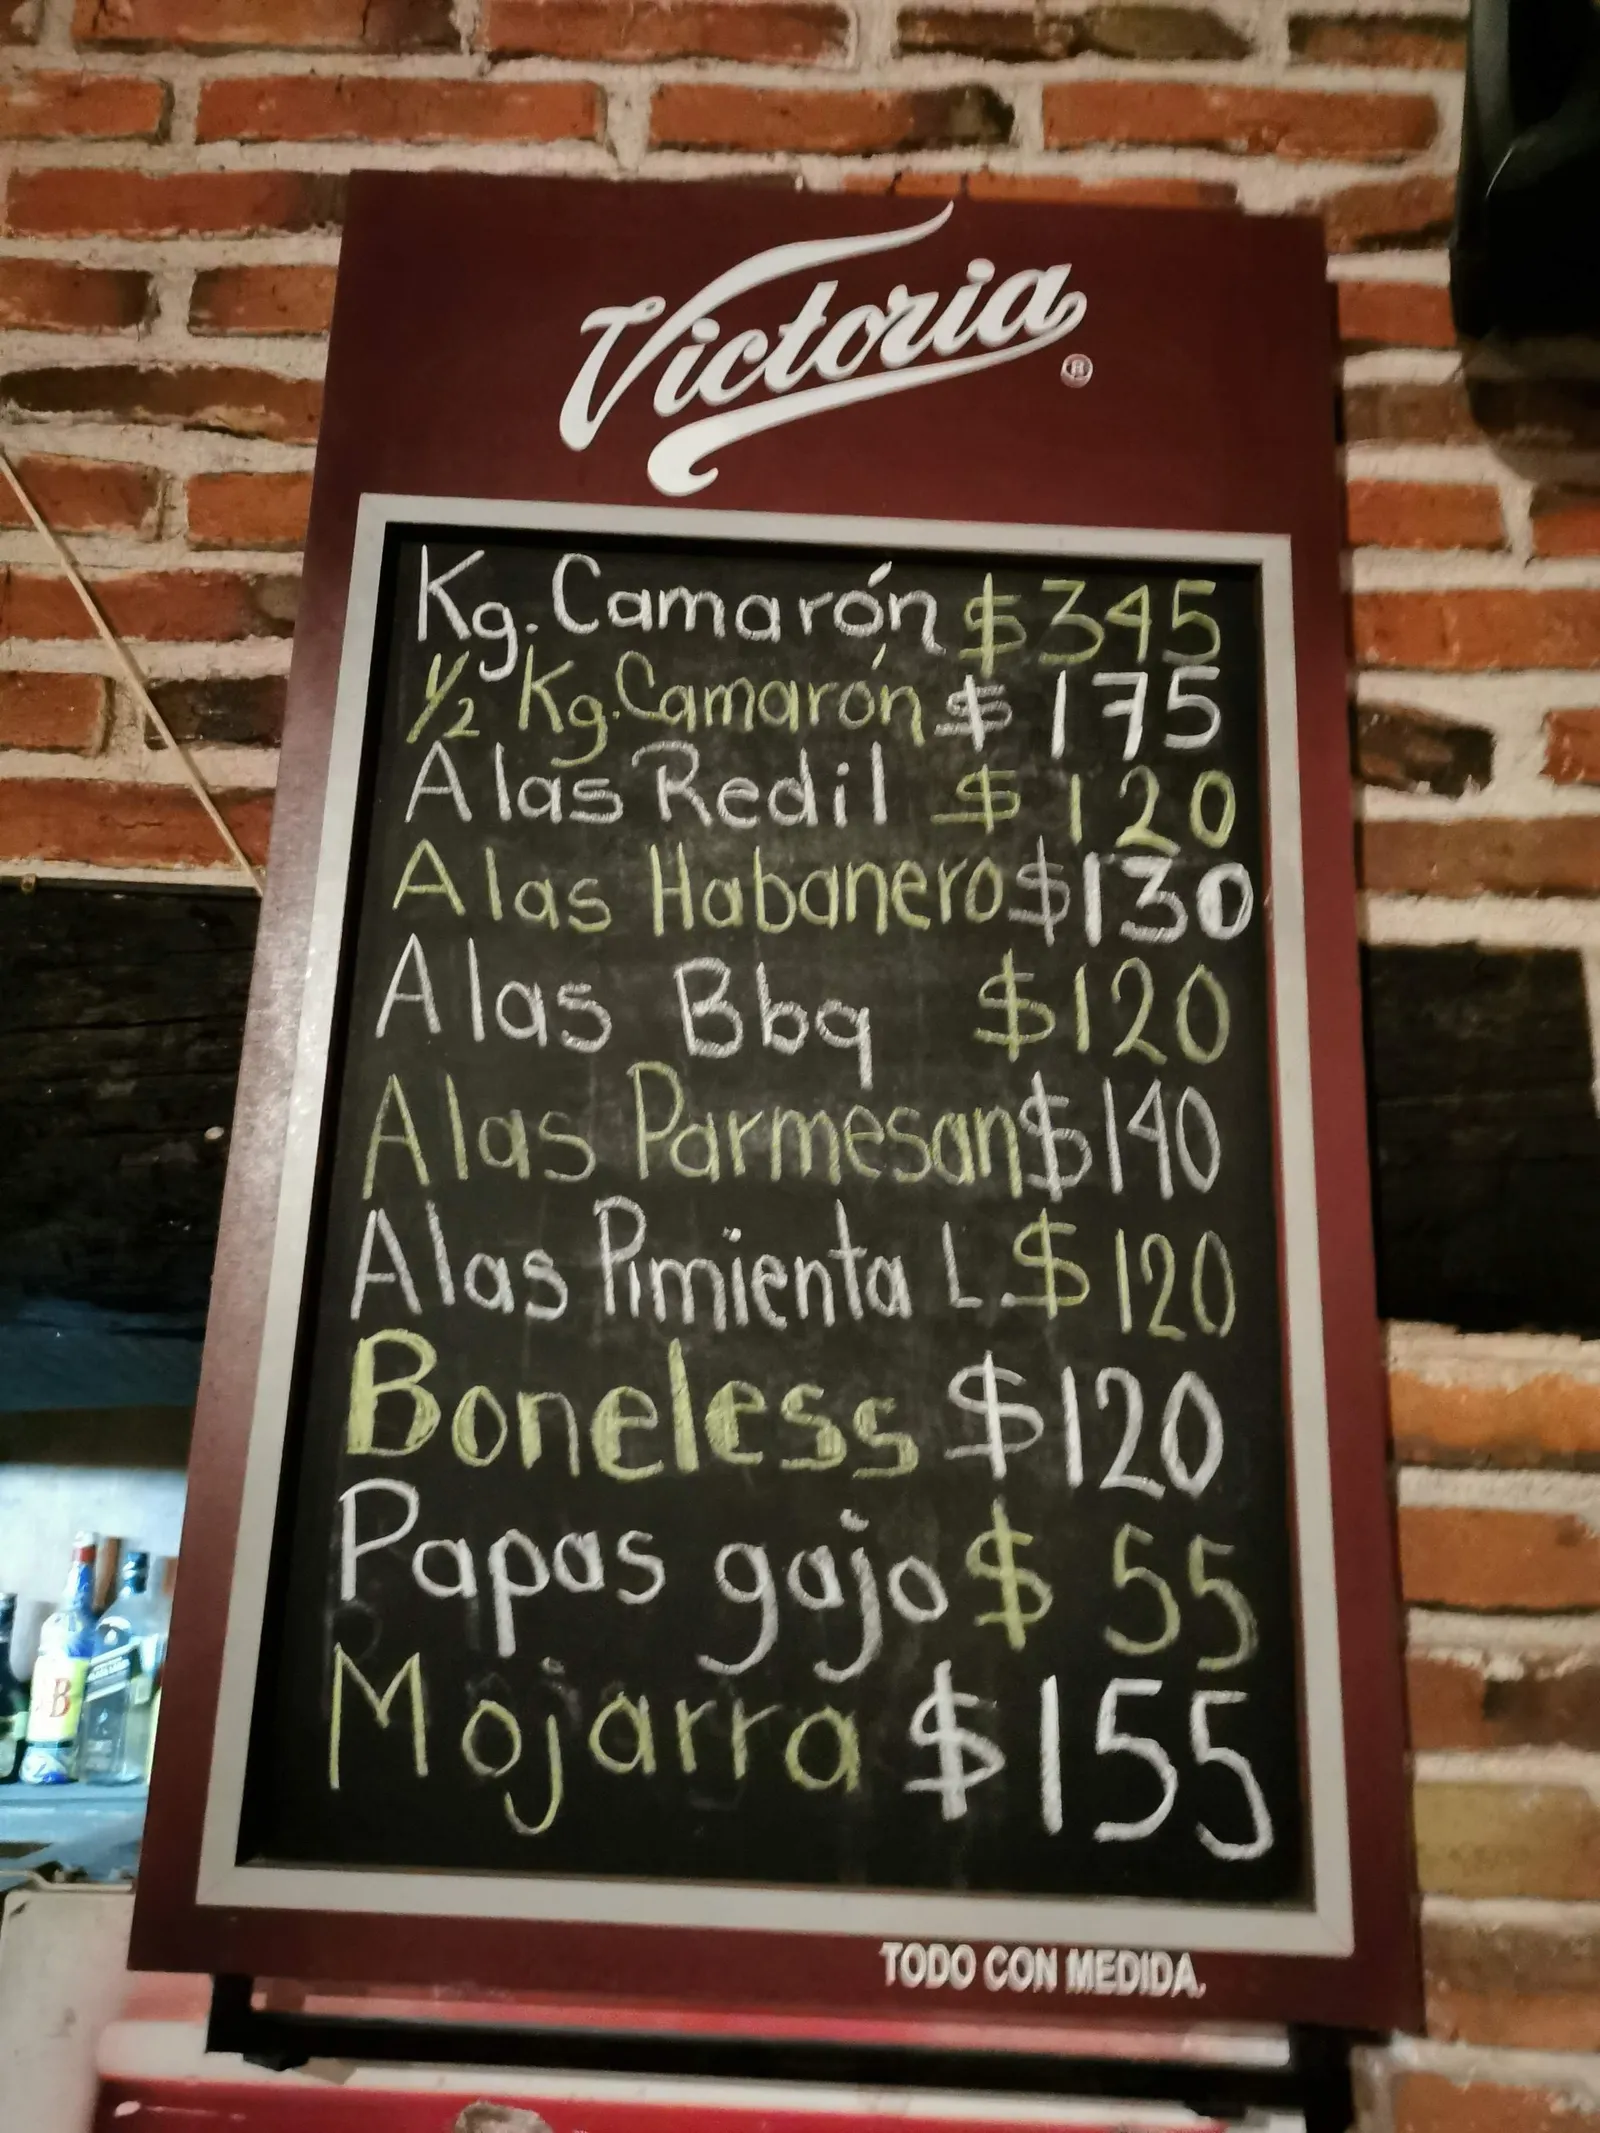 Victoria
®
Kg. Camarón $345
1/2 Kg. Camarón $175
Alas Redil $120
Alas Habanero $130
Alas Bbq $120
Alas Parmesan $140
Alas Pimienta L. $120
Boneless $120
Papas gajo $55
Mojarra $155
TODO CON MEDIDA.
B